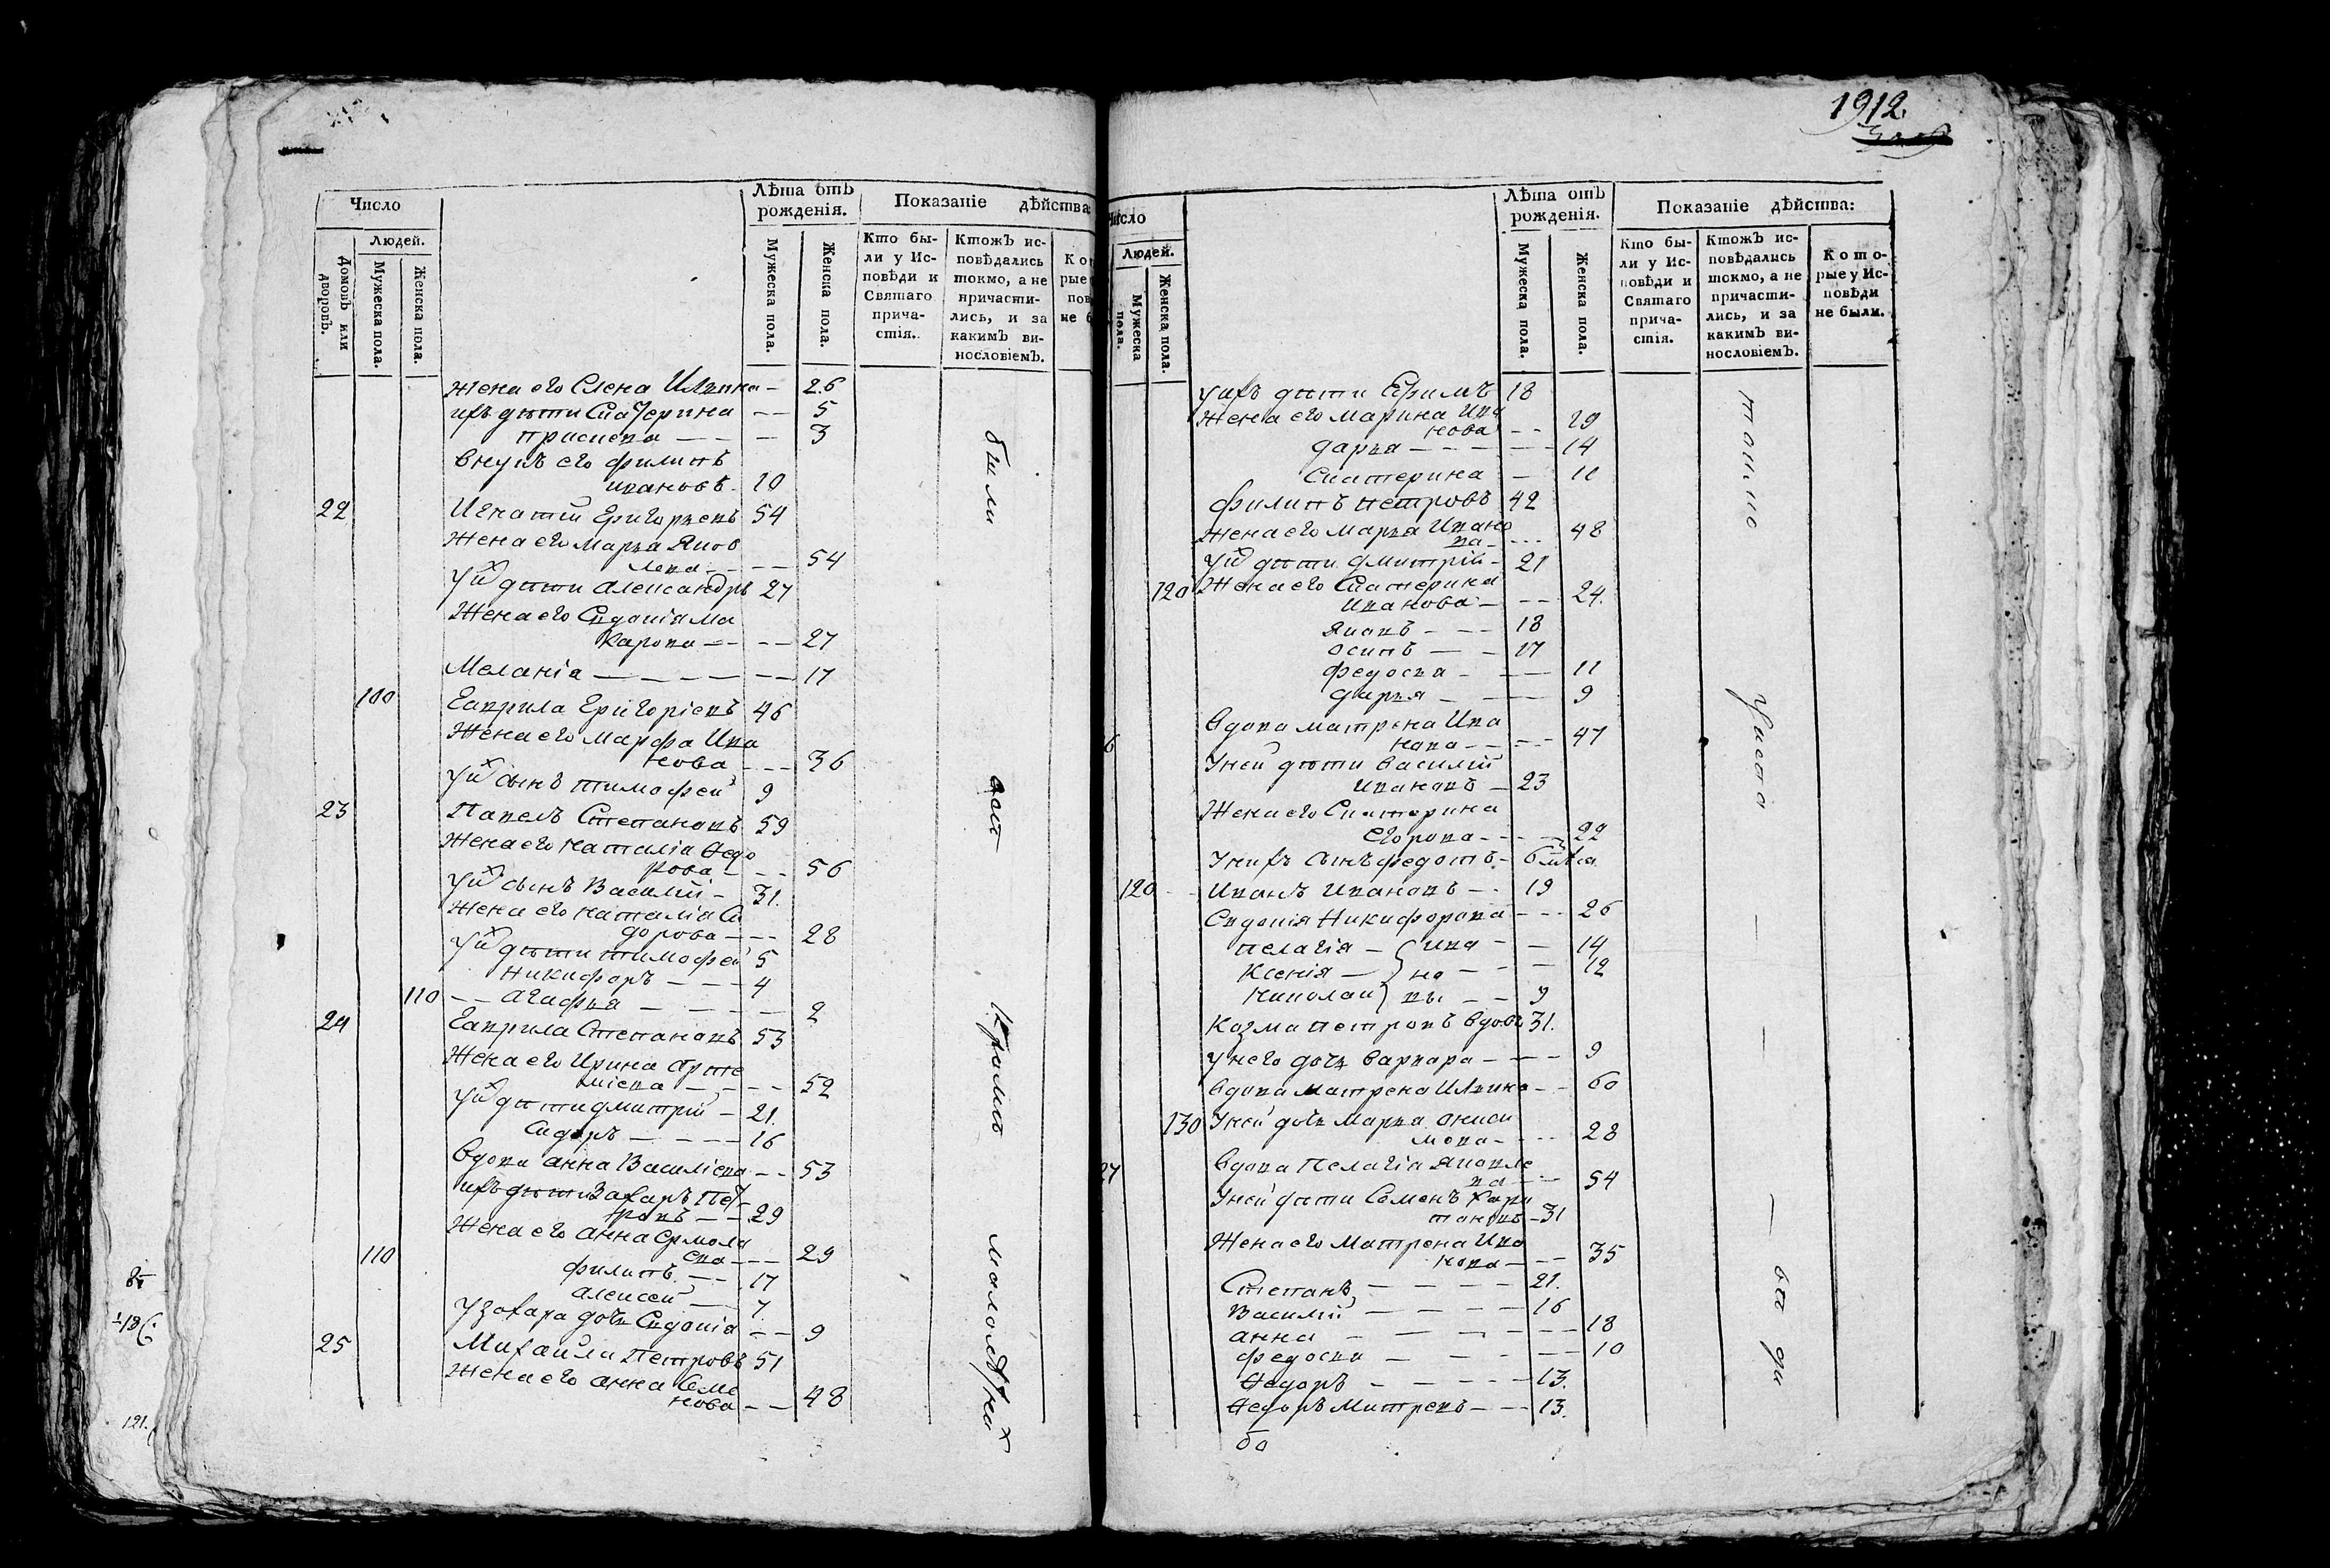 1912
Число
Людей.
Домовъ или дворовъ.
Мужеска пола.
Женска пола.
Лѣта отъ рожденія.
Мужеска пола.
Женска пола.
Показаніе дѣйства:
Кто бы-
ли у Ис-
повѣди и
Святаго
прича-
стія.
Ктожъ ис-
повѣдались
токмо, а не
причасти-
лись, и за
какимъ ви-
нословіемъ.
Жена его Елена Ильина — 26
ихъ дѣти Екатерина — — 5
Присцева — — — 3
внукъ его Филипъ
Ивановъ — 10
22 Игнатій Григорьевъ 54
Жена его Марья Яков
лева — — — 54
У них дѣти Александръ 27
Жена его Евдокія Ма
карова — — — 27
Меланія — — — — 17
100 Гаврила Григоріевъ 46
Жена его Марфа Ива
нова — — 36
У них сынъ Тимофей 9
23 Павелъ Степановъ 59
Жена его Наталія Ѳедо
рова — — 56
У них сынъ Василій — 31.
Жена его Наталія Си
дорова — — 28
У них дѣти Тимофей 5
Никифоръ — — — 4
110 — — Агафья — — — 2
24 Гаврила Степановъ 53
Жена его Ирина Арте
міева — — — 52
У них дѣти Дмитрій — 21.
Сидоръ — — — 16
Вдова Анна Василіева — — 53
ихъ дѣти Захаръ Пет
ровъ — — 29
Жена его Анна Ермола
ева — — 29
110 Филипъ — — 17
Алексей — — 7
У Захара дочь Евдокія — — 9
25 Михайла Петровъ 51
Жена его Анна Семе
нова — — 48
были
всѣ
кромѣ
малолѣтных
Число
Людей.
Мужеска пола.
Женска пола.
Лѣта отъ
рожденія.
Мужеска пола.
Женска пола.
Показаніе дѣйства:
Кто бы-
ли у Ис-
повѣди и
Святаго
прича-
стія.
Ктожъ ис-
повѣдались
токмо, а не
причасти-
лись, и за
какимъ ви-
нословіемъ.
Кото-
рые у Ис-
повѣди
не были.
У ихъ дѣти Ефимъ 18
Жена его Марина Ива
нова — — 19
Дарья — — — — 14
Екатерина — 11
Филипъ Петровъ 42
Жена его Марья Ивано
ва — — 48
У них дѣти Дмитрій — 21
120 Жена его Екатерина
Иванова — — — 24.
Яковъ — — — 18
Осипъ — — 17
Федосья — — — 11
Дарья — — — 9
Вдова Матрена Ива
нова — — — 47
У ней дѣти Василій
Ивановъ — 23
Жена его Екатерина
Егорова — — — 22
У нихъ сынъ Федотъ —
120 Иванъ Ивановъ — — 19
Евдокія Никифорова — — — 26
Пелагія — } Ива — — 14
Ксенія — } но — — 12
Николай } вы — — 9
Козма Петровъ вдовъ 31.
У него дочь Варвара — — — 9
Вдова Матрена Ильина — — 60
130 У ней дочь Марья Ониси
мова — — — 28
Вдова Пелагія Яковле
ва — — 54
У ней дѣти Семенъ Хари
тоновъ — 31
Жена его Матрена Ива
нова — — 35
Степанъ — — — — 21.
Василій — — — — 16
Анна — — — — — 18
Федосья — — — — 10
Ѳедоръ — — — — 13.
Ѳедоръ Митревъ — — 13.
во